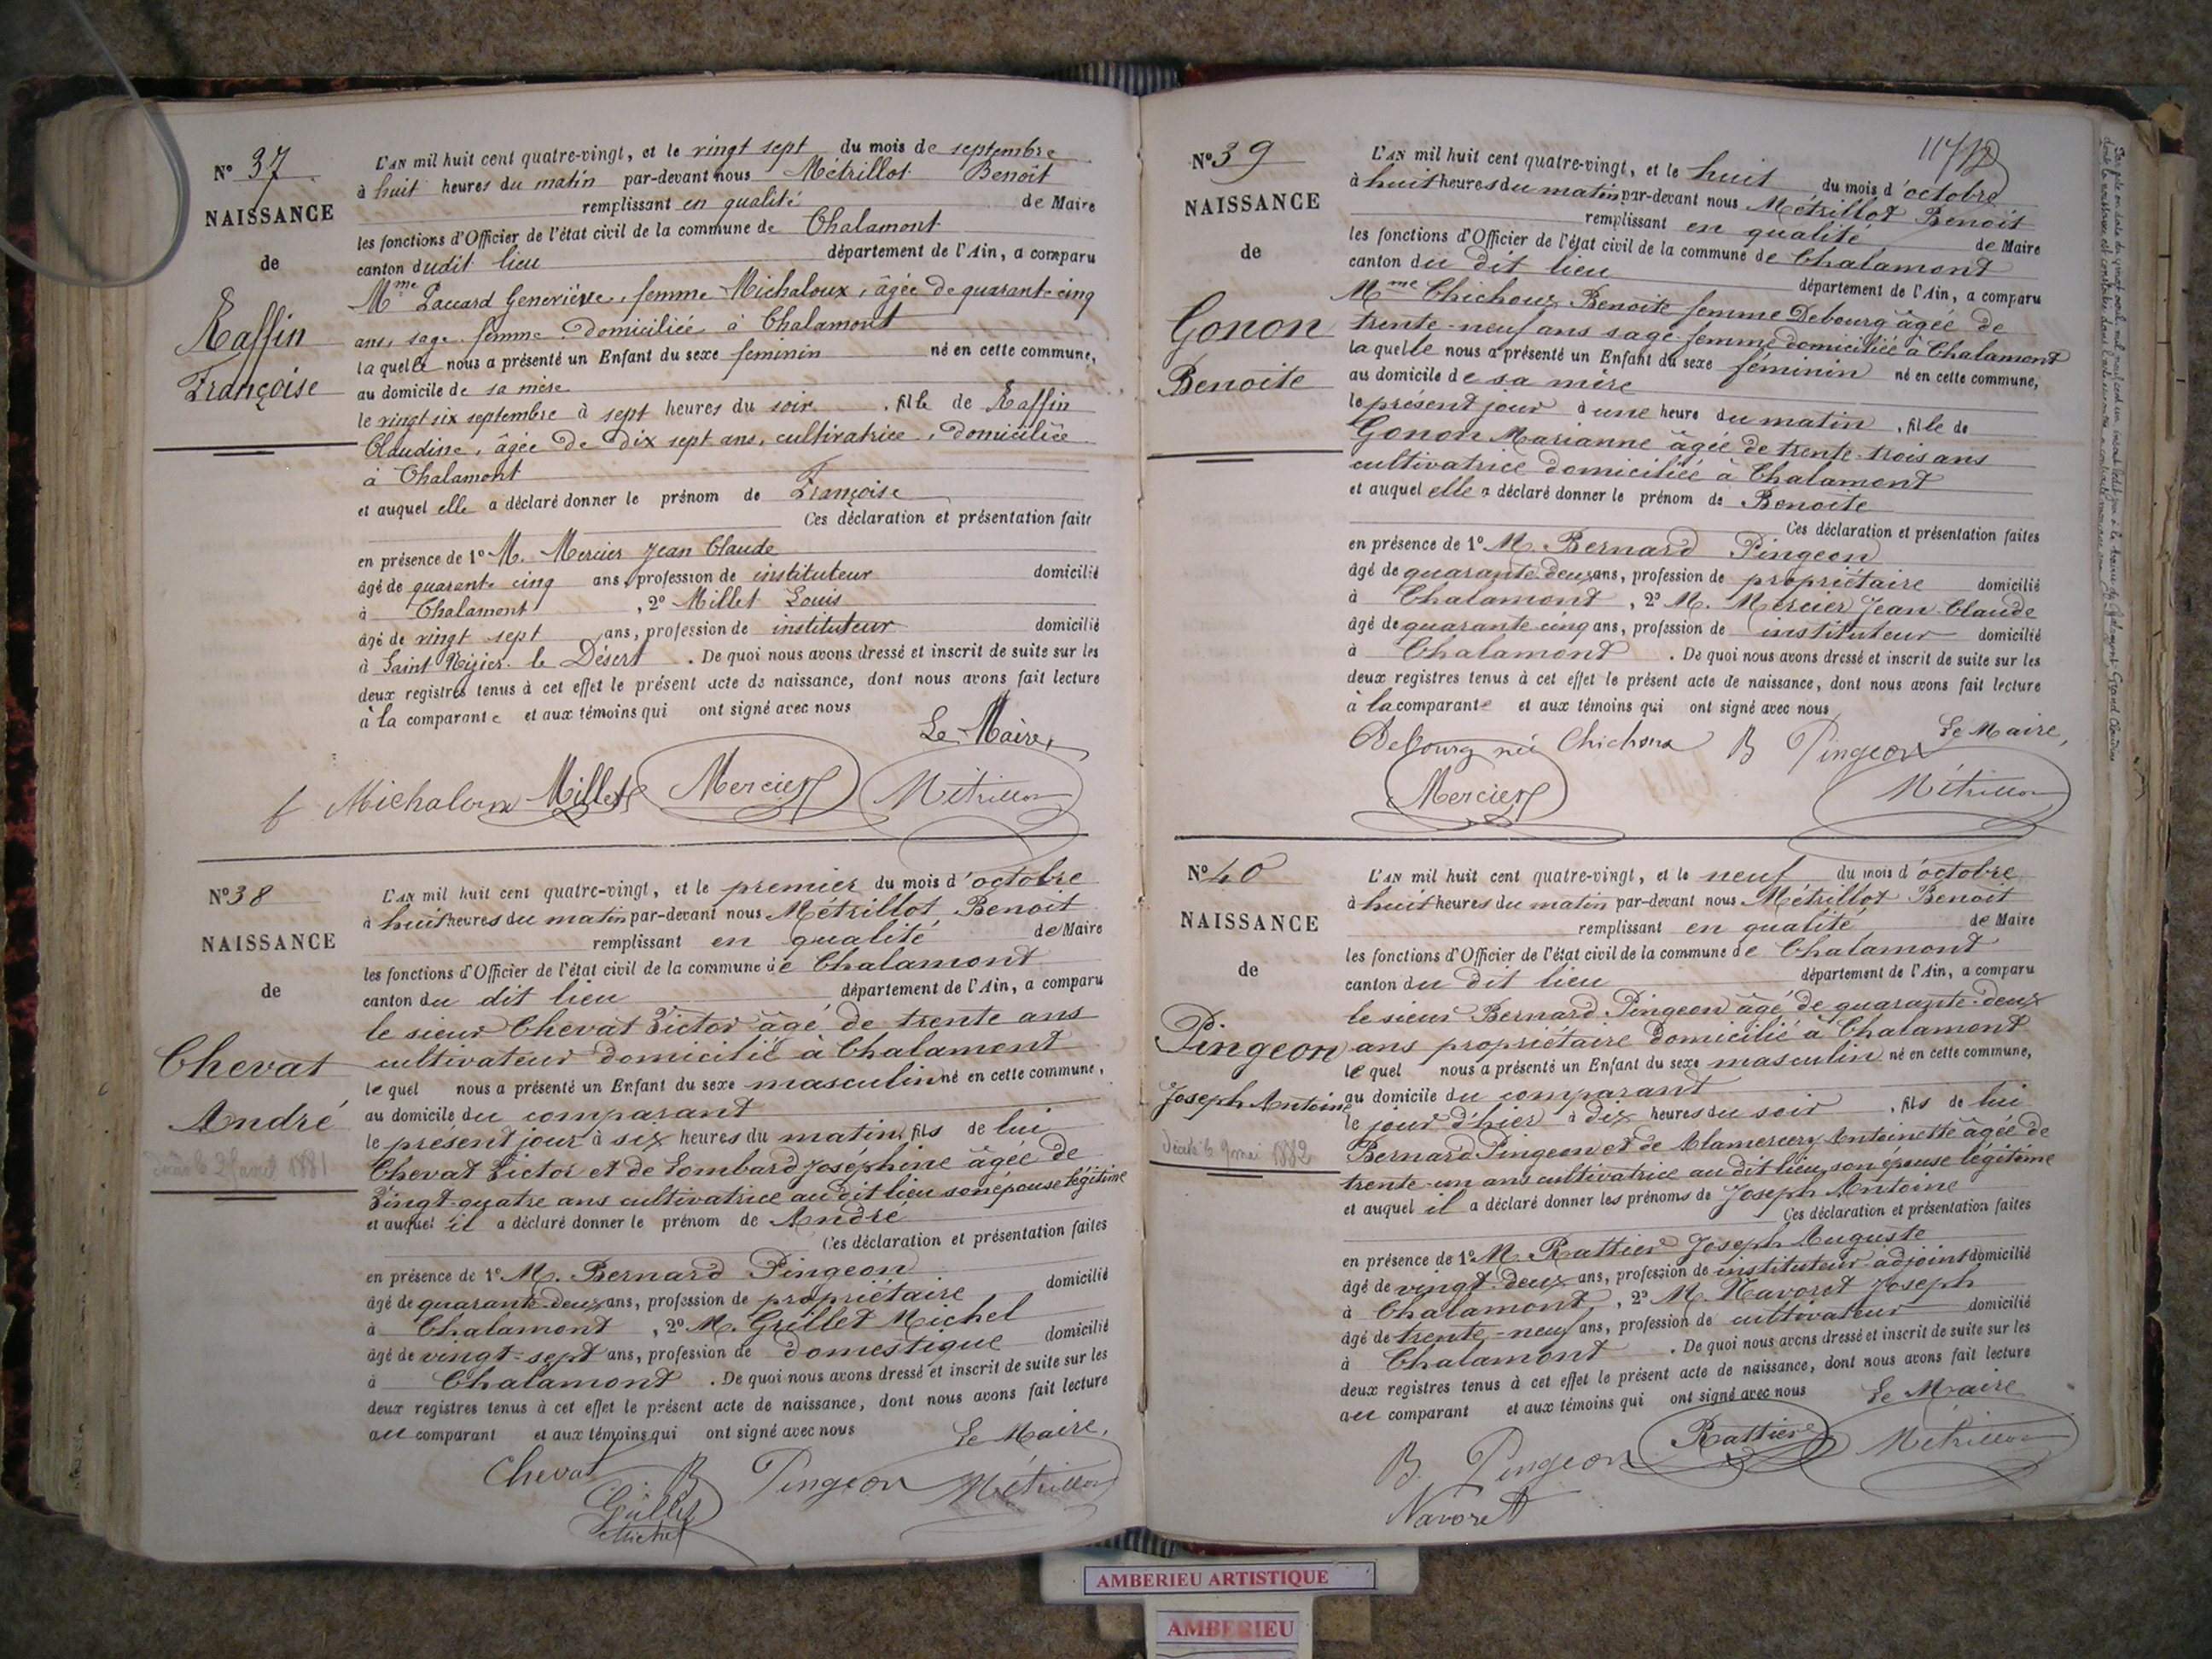 N° 37
NAISSANCE
de
Raffin
Françoise
L'AN mil huit cent quatre-vingt, et le vingt sept du mois de septembre
à huit heures du matin par-devant nous Métrillot Benoît
remplissant en qualité de Maire
les fonctions d'Officier de l'état civil de la commune de Chalamont
canton dudit lieu département de l'Ain, a comparu
Mme Paccard Geneviève, femme Michaloux, âgée de quarante cinq
ans, sage femme domiciliée à Chalamont
laquelle nous a présenté un Enfant du sexe feminin né en cette commune,
au domicile de sa mère
le vingt six septembre à sept heures du soir, fille de Raffin
Claudine, âgée de dix sept ans, cultivatrice, domiciliée
à Chalamont
et auquel elle a déclaré donner le prénom de Françoise
Ces déclaration et présentation faite
en présence de 1° M. Mercier Jean Claude
âgé de quarante cinq ans, profession de instituteur domicilié
à Chalamont, 2° Millet Louis
âgé de vingt sept ans, profession de instituteur domicilié
à Saint Nizier le Désert. De quoi nous avons dressé et inscrit de suite sur les
deux registres tenus à cet effet le présent acte de naissance, dont nous avons fait lecture
à la comparante et aux témoins qui ont signé avec nous
Le Maire,
f Michaloux Millet Mercier Métrillot
N° 38
NAISSANCE
de
Chevat
André
1881
L'AN mil huit cent quatre-vingt, et le premier du mois d'octobre
à huit heures du matin par-devant nous Métrillot Benoit
remplissant en qualité de Maire
les fonctions d'Officier de l'état civil de la commune de Chalamont
canton du dit lieu département de l'Ain, a comparu
le sieur Chevat Victor âgé de trente ans
cultivateur domicilié à Chalamont
lequel nous a présenté un Enfant du sexe masculin né en cette commune,
au domicile du comparant
le présent jour à six heures du matin, fils de lui
Chevat Victor et de Lombard Joséphine âgée de
Vingt-quatre ans cultivatrice au dit lieu son epouse légitime
et auquel il a déclaré donner le prénom de André
Ces déclaration et présentation faites
en présence de 1° M. Bernard Pingeon
âgé de quarante-deux ans, profession de propriétaire domicilié
à Chalamont, 2° M. Grillet Michel
âgé de vingt-sept ans, profession de domestique domicilié
à Chalamont. De quoi nous avons dressé et inscrit de suite sur les
deux registres tenus à cet effet le présent acte de naissance, dont nous avons fait lecture
au comparant et aux témoins qui ont signé avec nous
Le Maire,
Chevat B Pingeon Métrillot
Grillet
Michel
117/12
N° 39
NAISSANCE
de
Gonon
Benoite
L'AN mil huit cent quatre-vingt, et le huit du mois d'octobre
à huit heures du matin par-devant nous Métrillot Benoit
remplissant en qualité de Maire
les fonctions d'Officier de l'état civil de la commune de Chalamont
canton du dit lieu département de l'Ain, a comparu
Mme Chichoux Benoite femme Debourg âgée de
trente-neuf ans sage femme domiciliée à Chalamont
laquelle nous a présenté un Enfant du sexe féminin né en cette commune,
au domicile de sa mère
le présent jour à une heure du matin, fille de
Gonon Marianne âgée de trente-trois ans
cultivatrice domiciliée à Chalamont
et auquel elle a déclaré donner le prénom de Benoite
Ces déclaration et présentation faites
en présence de 1° M. Bernard Pingeon
âgé de quarante-deux ans, profession de propriétaire domicilié
à Chalamont, 2° M. Mercier Jean-Claude
âgé de quarante-cinq ans, profession de instituteur domicilié
à Chalamont. De quoi nous avons dressé et inscrit de suite sur les
deux registres tenus à cet effet le présent acte de naissance, dont nous avons fait lecture
à la comparante et aux témoins qui ont signé avec nous
Le Maire,
Debourg née Chichoux B Pingeon
Mercier Métrillot
N° 40
NAISSANCE
de
Pingeon
Joseph Antoine
Décédé le 9 mai 1882
L'AN mil huit cent quatre-vingt, et le neuf du mois d'octobre
à huit heures du matin par-devant nous Métrillot Benoit
remplissant en qualité de Maire
les fonctions d'Officier de l'état civil de la commune de Chalamont
canton du dit lieu département de l'Ain, a comparu
le sieur Bernard Pingeon âgé de quarante-deux
ans propriétaire domicilié à Chalamont
lequel nous a présenté un Enfant du sexe masculin né en cette commune,
au domicile du comparant
le jour d'hier à dix heures du soir, fils de lui
Bernard Pingeon et de Alamercery Antoinette âgée de
trente-un ans cultivatrice au dit lieu, son épouse légitime
et auquel il a déclaré donner les prénoms de Joseph Antoine
Ces déclaration et présentation faites
en présence de 1° M. Rattier Joseph Auguste
âgé de vingt-deux ans, profession de instituteur adjoint domicilié
à Chalamont, 2° M. Navoret Joseph
âgé de trente-neuf ans, profession de cultivateur domicilié
à Chalamont. De quoi nous avons dressé et inscrit de suite sur les
deux registres tenus à cet effet le présent acte de naissance, dont nous avons fait lecture
au comparant et aux témoins qui ont signé avec nous
Le Maire
B. Pingeon Rattier Métrillot
Navoret
AMBERIEU ARTISTIQUE
AMBERIEU